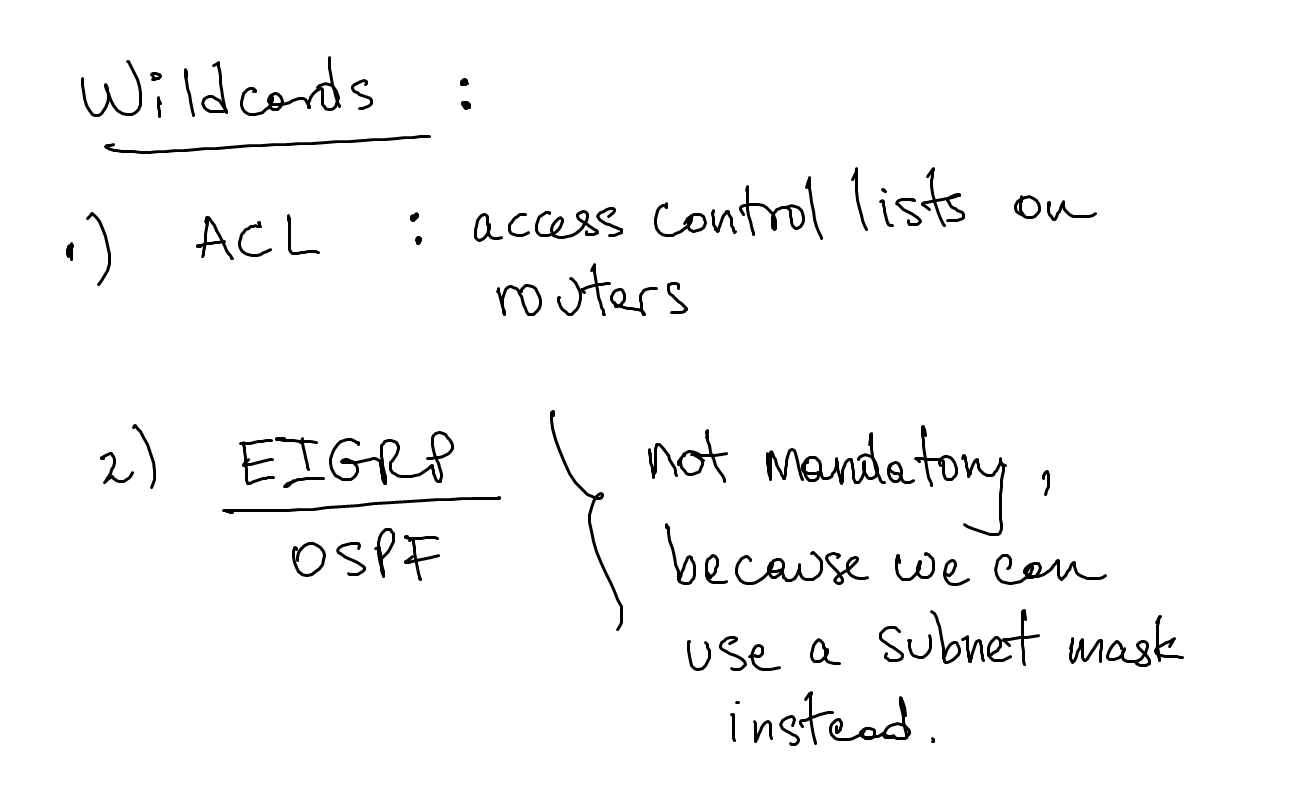 Wildcards :
1) ACL : access control lists on
routers
2) EIGRP not mandatory,
OSPF because we can
use a subnet mask
instead.